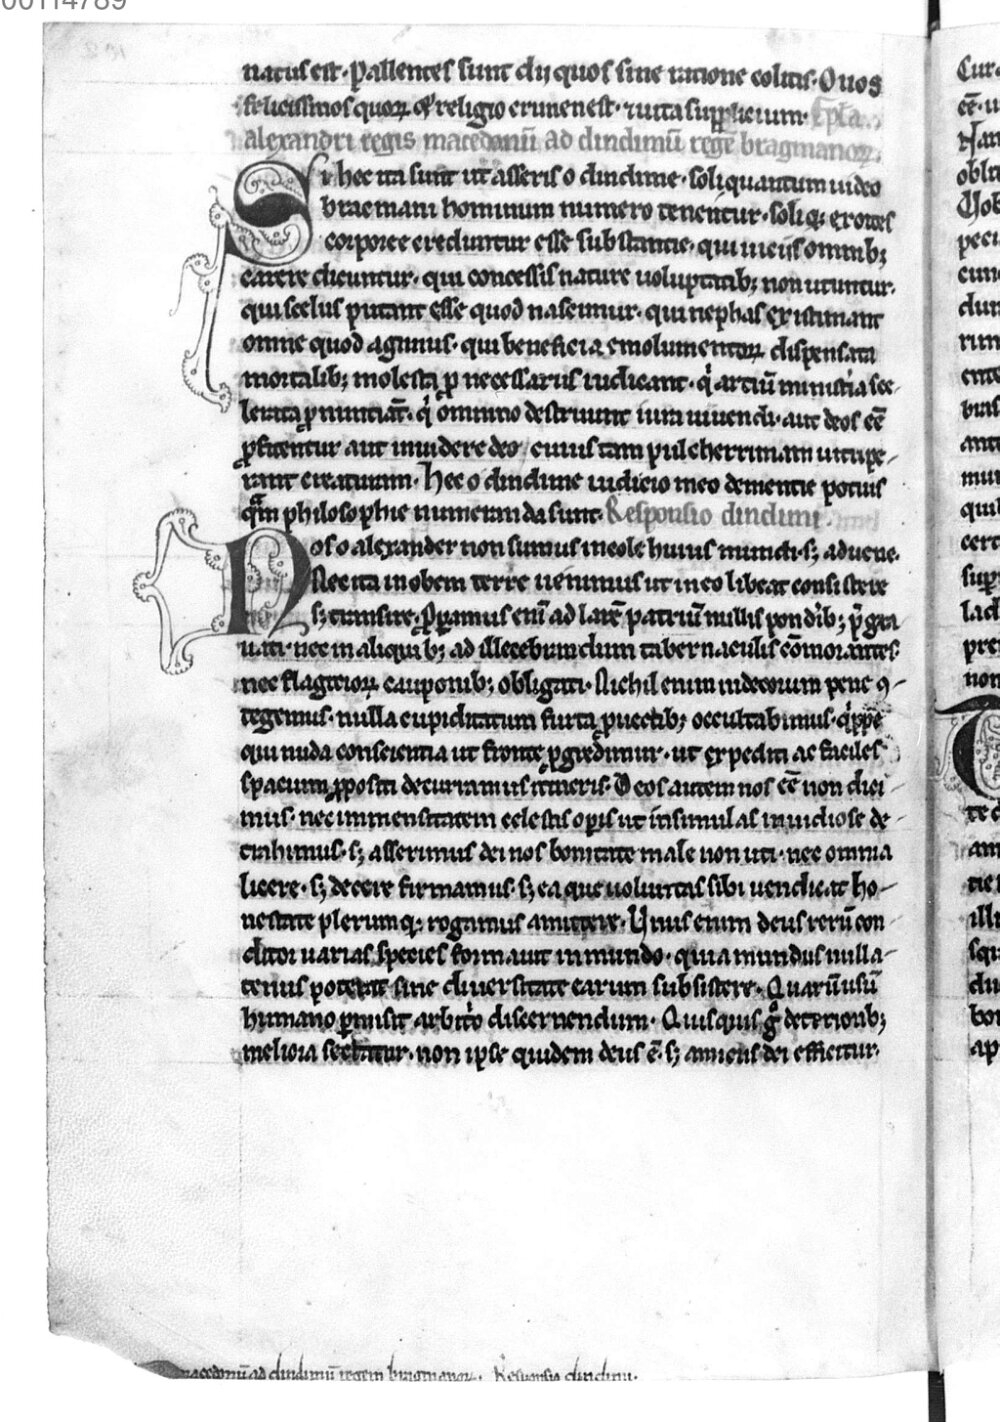 00114789
natus est. Pallentes sunt dii quos sine ratione colitis. Quos
felicissimos quorꝝ & religio crimen est. ⁊ uita supplicium. Epl̄a
alexandri regis macedonū ad dindimū regē bragmanorꝝ.
Si hec ita sunt ut asseris o dindime. soli quantum uideo
bracmani hominum numero tenentur. soli qꝫ expertes
corporee creduntur esse substantie. qui uiciis omnibꝫ
carere dicuntur. qui concessis nature uoluptatibꝫ non utuntur.
qui scelus putant esse quod nascimur. qui nephas existimant
omne quod agimus. qui beneficia emolumentorꝝ dispensata
mortalibꝫ molesta ꝑ necessariis iudicant. qͥ artiū ministia sce-
lerata ꝓnunciāt. qͥ omnino destruunt iura uiuendi. aut deos eē
ꝓfitentur aut inuidere deo / cuius tam pulcherrimam uitupe-
rant creaturam. Hec o dindime iudicio meo dementie potius
qͣm philosophie numeranda sunt. Responsio dindimi
Nos o alexander non sumus incole huius mundi. sꝫ aduene.
Nec ita in obem terre uenimus ut in eo libeat consistere
sꝫ transire. Pꝑamus enī ad larē patriū nullis pondībꝫ p̄gra
uati. nec in aliquibꝫ ad illecebrarum dum tabernaculis cōmorantes
nec flagitiorꝝ cauponibꝫ obligati. Nichil enim indecorum pene ꝯ-
tegemus. nulla cupiditatum furta ꝓuectibꝫ occultabimus. qͥppe
qui nuda conscientia ut fronte ꝓgredimur. ut expediti ac faciles
spacium ꝓpositi decurramus itineris. Deos autem nos eē non dici
mus. nec immensitatem celestis opis ut insimulas inuidiose de-
trahimus. sꝫ asserimus dei nos bonitate male non uti. nec omnia
licere. sꝫ decere firmamus. sꝫ ea que uoluntas sibi uendicat ho-
nestate plerumqꝫ rogamus amittere. Unus enim deus rerū con
ditor uarias species formauit in mundo. quia mundus nulla-
tenus poterat sine diuersitate earum subsistere. Quarū usū
humano ꝑmisit arbitͥo discernendum. Quisquis gͦ deterioribꝫ
meliora sectatur. non ipse quidem deus ē. sꝫ amicus dei efficitur.
macedonū ad dindimū regem bragmanorꝝ. Responsio dindimi.